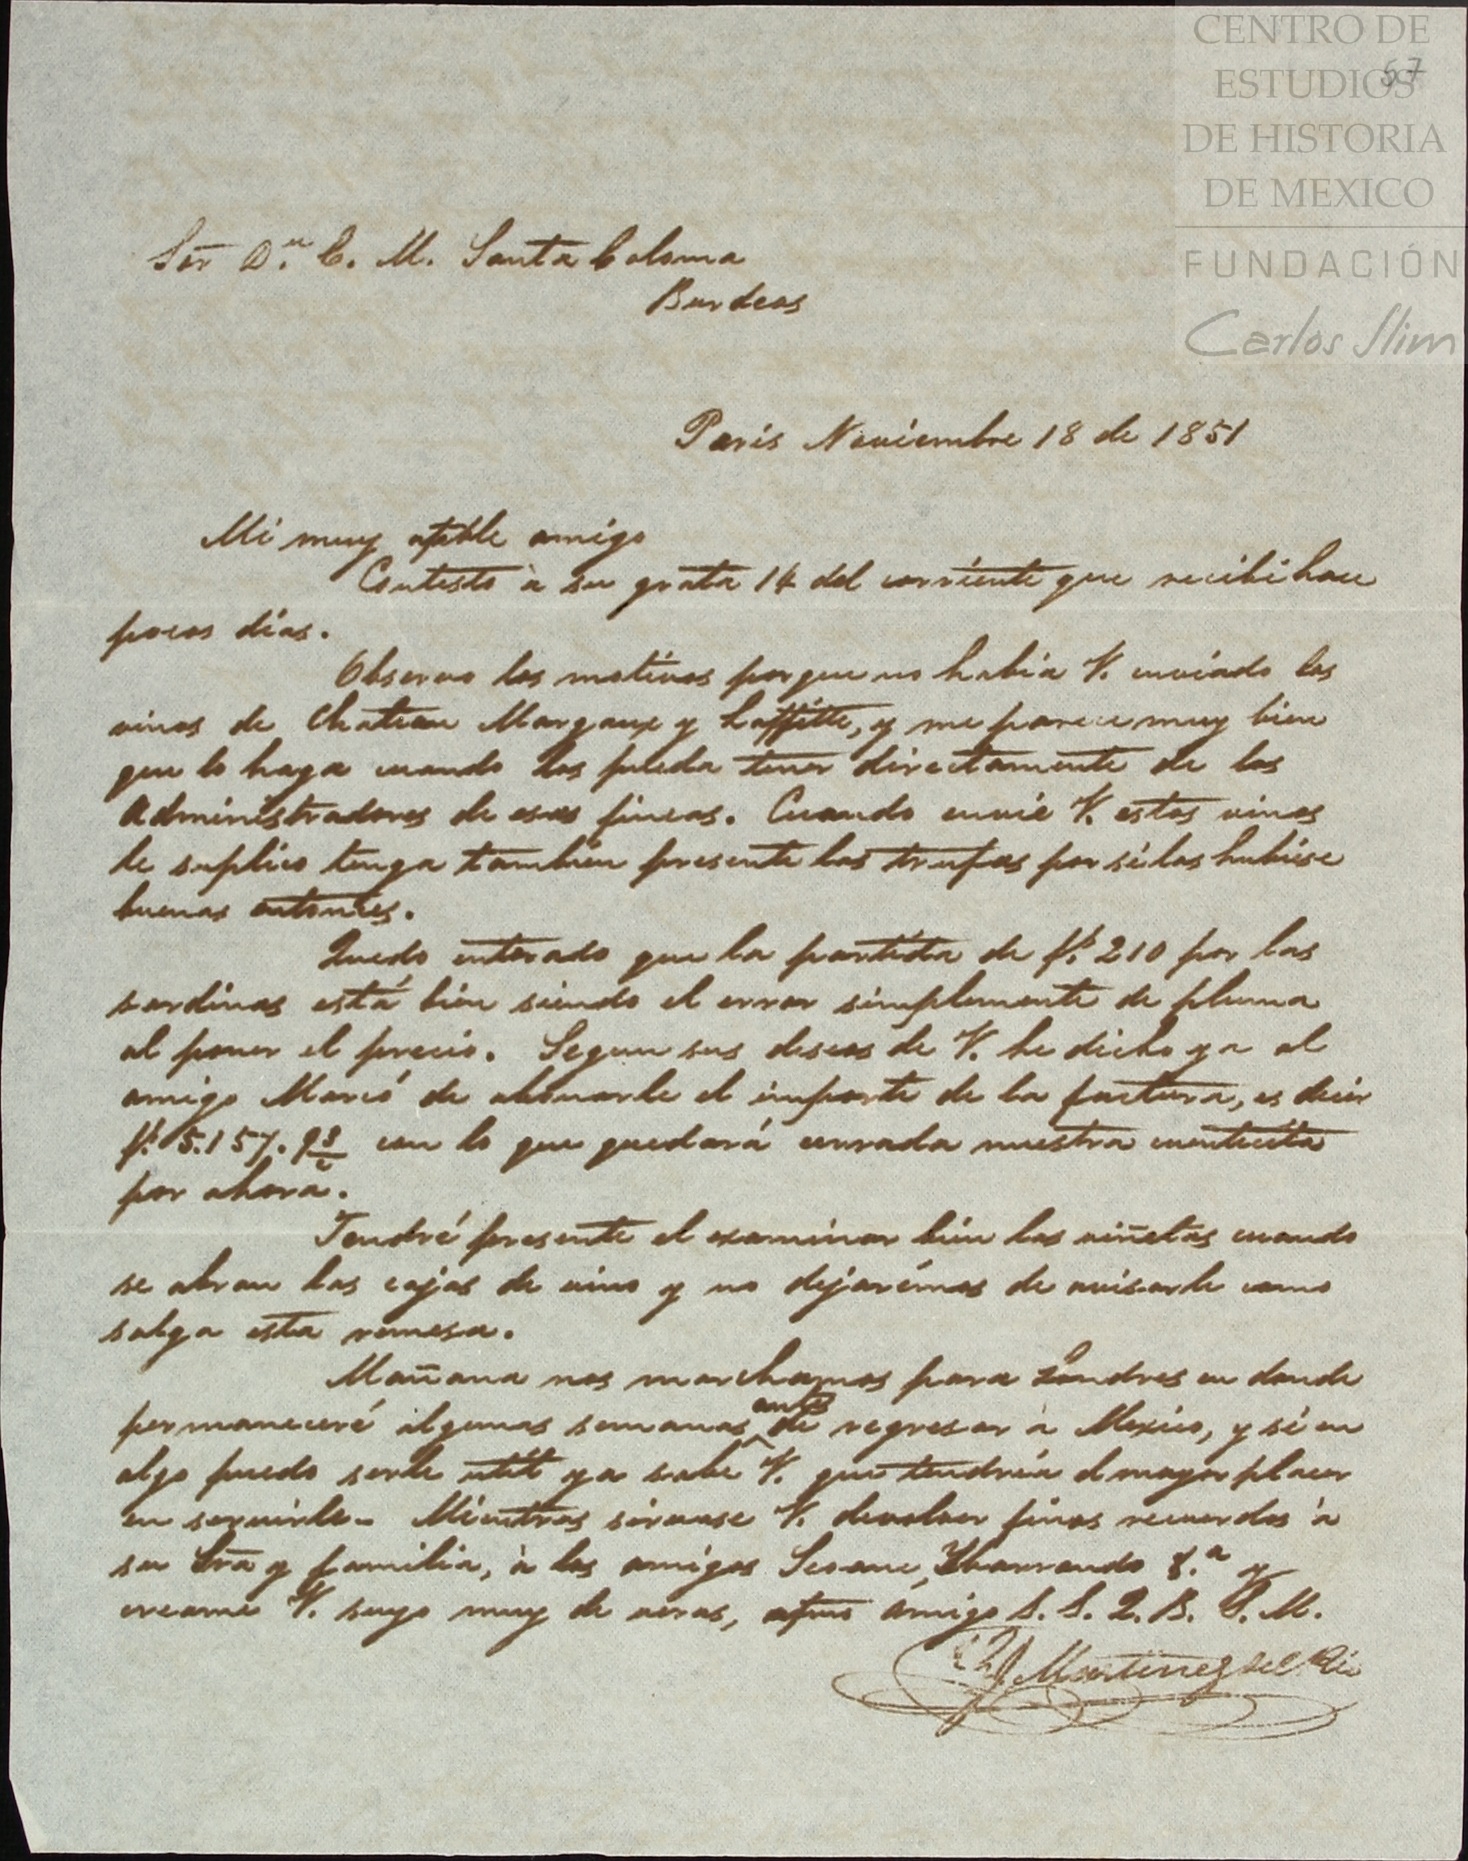 CENTRO DE
ESTUDIOS
DE HISTORIA
DE MEXICO
FUNDACIÓN
Carlos Slim
67
Sor Dn. C. M. Santa Coloma
Burdeos
Paris Noviembre 18 de 1851
Mi muy apble amigo
Contesto à su grata 14 del corriente que recibi hace
pocos dias.
Observo los motivos porque no habia V. enviado los
vinos de Chateau Margaux y Laffitte, y me parece muy bien
que lo haga cuando los pueda tener directamente de los
Administradores de esas fincas. Cuando envie V. estos vinos
le suplico tenga tambien presente las trufas por si las hubiese
buenas entonces.
Quedo enterado que la partida de fs. 210 por las
sardinas está bien siendo el error simplemente de pluma
al poner el precio. Segun sus deseos de V. he dicho ya al
amigo de abonarle el importe de la factura, es decir
fs. 5.157. con lo que quedará cerrada nuestra cuentecita
por ahora.
Tendré presente el examinar bien las viñetas cuando
se abran las cajas de vino y no dejarémos de avisarle como
salga esta remesa.
Mañana nos marchamos para Londres en donde
permaneceré algunas semanas antes de regresar à Mexico, y si en
algo puedo serle util ya sabe V. que tendria el mayor placer
en servirle. Mientras sirvase V. devolver finos recuerdos à
su Sra y familia, à los amigos Seoane, Ybarrondo &.a y
creame V. suyo muy de veras, afmo amigo S. S. Q. B. S. M.
Martinez del Rio